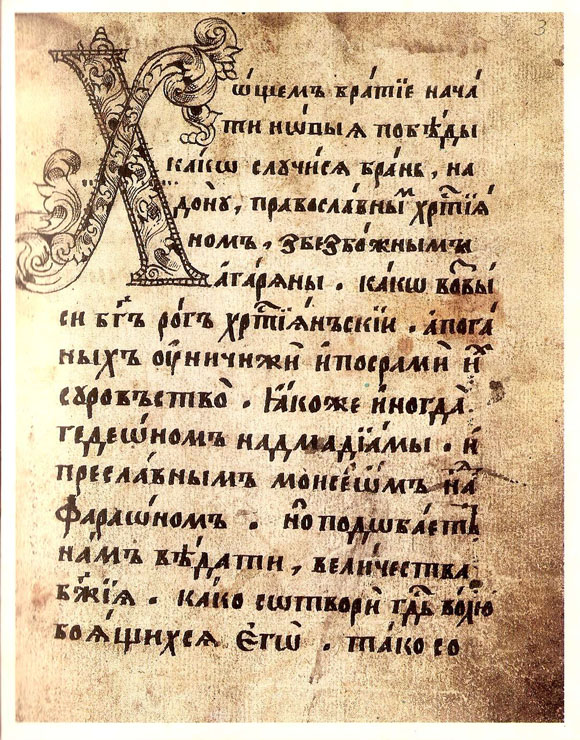 3
Хѡ́щемъ бра́тїе нача́
ти но́выѧ побѣ́ды
ка́кѡ случи́сѧ бра́нь, на
дону̀, правосла́вныⷨ хрⷭ҇тїѧ́
номъ, з безбо́жнымъ
а҆гарѧ́ны . ка́кѡ возвы́
си бг҃ъ ро́гъ хрⷭ҇тїѧ́нъскїи . а҆пога́
ныхъ ᲂу҆ничижѝ и҆посрамѝ и҆ⷯ
суровъство̀ . ꙗ҆́коже и҆ногда̀
гедеѡ́номъ надмадїа́мы . и҆
пресла́внымъ моисе́ѡмъ на́
фараѡ́номъ . но̀ подѡба́етъ
на́мъ вѣ́дати, вели́чества
бж҃їѧ . ка́ко сотворѝ гдⷭ҇ь во́лю
боѧ́щихсѧ є҆гѡ̀ . та́ко со